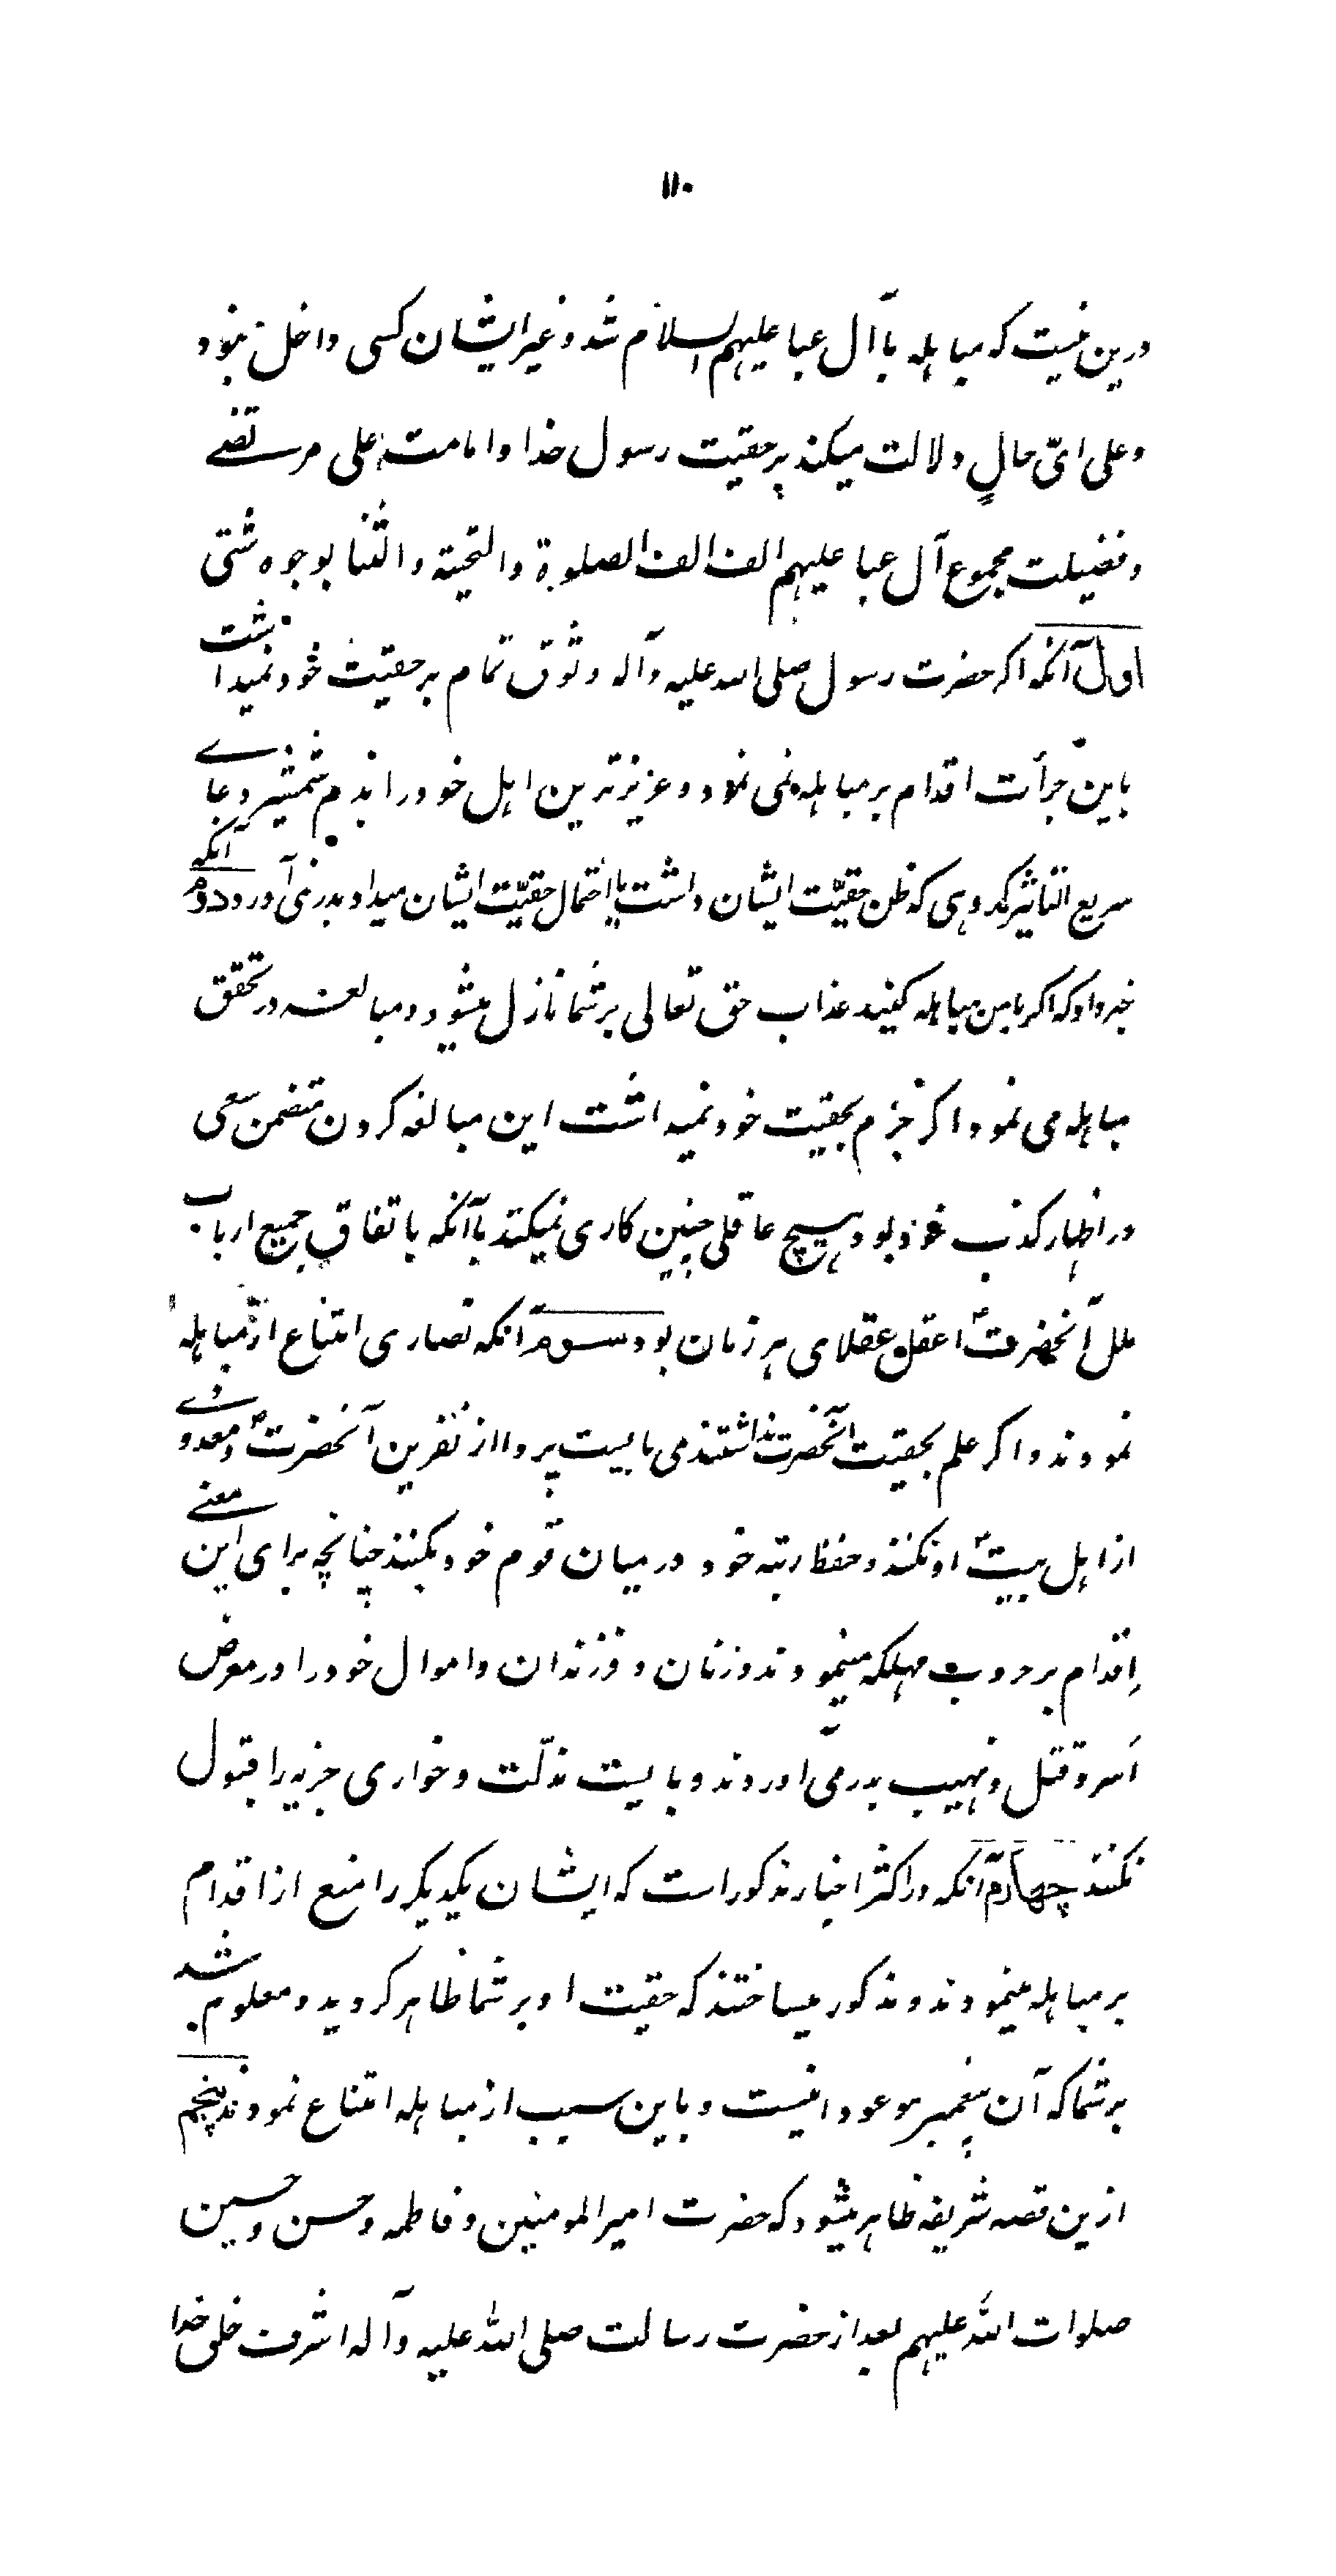 ۱۱۰
درین نیست که مباهله باآل عبا علیهم السلام شد و غیر ایشان کسی داخل نبود
و علی ایّ حالٍ دلالت میکند بر حقیت رسول خدا و امامت علی مرتضے
و فضیلت مجموع آل عبا علیهم الف الف الصلوة والتحیة والثنا بوجوه شتی
اول آنکه اکر حضرت رسول صلی الله علیه وآله وثوق تمام بر حقیت خود نمیداشت
باین جرأت اقدام بر مباهله نمی نمود و عزیزترین اهل خود را بدم شمشیر دعاے
سریع التاثیر کروهی که ظن حقیّت ایشان داشت یا احتمال حقیّت ایشان میداد بدر نمی آورد دوم آنکه
خبر داد که اکر بامن مباهله کنید عذاب حق تعالی بر شما نازل میشود و مبالغه در تحقق
مباهله می نمود اکر جزم بحقیت خود نمیداشت این مبالغه کردن متضمن سعی
در اظهار کذب خود بود و هیچ عاقلی چنین کاری نمیکند باآنکه باتفاق جمیع ارباب
ملل آنحضرت اعقل عقلای هر زمان بود سوم آنکه نصاری امتناع از مباهله
نمودند و اکر علم بحقیت آنحضرت نداشتند می بایست پروا از نفرین آنحضرت و معدودے
از اهل بیت او نکنند و حفظ رتبه خود در میان قوم خود بکنند چنانچه برای این معنے
اقدام بر حروب مهلکه مینمودند و زنان و فرزندان و اموال خود را در معرض
اسر و قتل و نهیب بدر می آوردند و بایست مذلّت و خواری جزیه را قبول
نکنند چهارم آنکه در اکثر اخبار مذکور است که ایشان یکدیکر را منع از اقدام
بر مباهله مینمودند و مذکور میساختند که حقیت او بر شما ظاهر کردید و معلوم شد
بر شما که آن پیغمبر موعود اینست و باین سبب از مباهله امتناع نمودند پنجم
ازین قصه شریفه ظاهر میشود که حضرت امیر المومنین و فاطمه و حسن و حسین
صلوات الله علیهم بعد از حضرت رسالت صلی الله علیه وآله اشرف خلق خدا